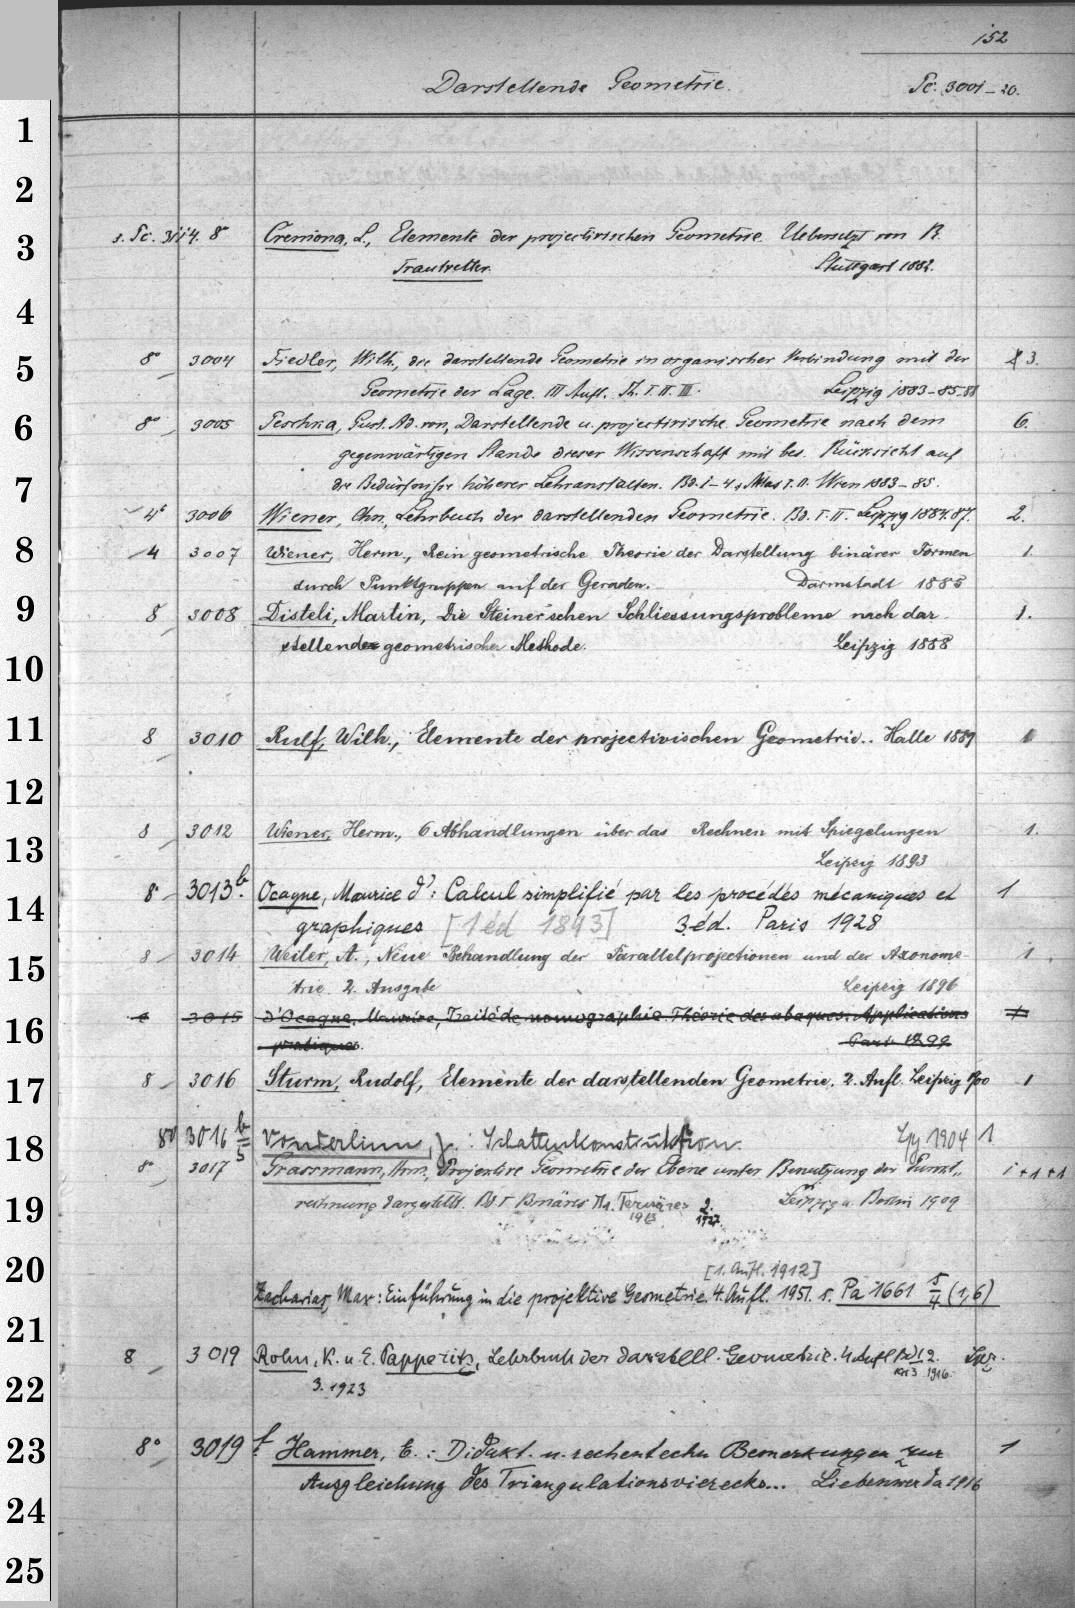 152
Darstellende Geometrie. Sc. 3001-20.
1
2
3
s. Sc. 3114. 8° Cremona, L., Elemente der projectivischen Geometrie. Uebersetzt von R.
Trautvetter. Stuttgart 1882.
4
5
8° 3004 Fiedler, Wilh., die darstellende Geometrie in organischer Verbindung mit der 3.
Geometrie der Lage. III Aufl. Th. I. II. III. Leipzig 1883-85-88
6
8° 3005 Peschka, Gust. Ad. von, Darstellende u. projectivische Geometrie nach dem 6.
gegenwärtigen Stande dieser Wissenschaft mit bes. Rücksicht auf
7
die Bedürfnisse höherer Lehranstalten. Bd. 1-4, Atlas I. II. Wien 1883-85.
4° 3006 Wiener, Chn., Lehrbuch der darstellenden Geometrie. Bd. I-II. Leipzig 1884.87. 2.
8
4 3007 Wiener, Herm., Rein geometrische Theorie der Darstellung binärer Formen 1.
durch Punktgruppen auf der Geraden. Darmstadt 1885
9
8 3008 Disteli, Martin, Die Steiner'schen Schliessungsprobleme nach dar 1.
stellende geometrischer Methode. Leipzig 1888
10
11
8 3010 Rulf, Wilh., Elemente der projectivischen Geometrie.. Halle 1889 1
12
8 3012 Wiener, Herm., 6 Abhandlungen über das Rechnen mit Spiegelungen 1.
13
Leipzig 1893
14
8 3013 b. Ocagne, Maurice d': Calcul simplifié par les procédés mécaniques et 1
graphiques [1 éd 1843] 3 éd. Paris 1928
15
8 3014 Weiler, A., Neue Behandlung der Parallelprojectionen und der Axonome- 1.
trie. 2. Ausgabe Leipzig 1896
16
3015 d'Ocagne, Maurice, Traité de nomographie. Théorie des abaques. Applications
pratiques. Paris 1899
17
8 3016 Sturm, Rudolf, Elemente der darstellenden Geometrie. 2. Aufl. Leipzig 1900 1
18
8° 3016 b/5 Vonderlinn, J.: Schattenkonstruktion. Lpg 1904 1
8° 3017 Grassmann, Hm., Projektive Geometrie der Ebene unter Benutzung der Punkt- 1+1+1
19
rechnung dargestellt. Bd. I Binäres Th. Ternäres 2. Leipzig u. Berlin 1909
1913 1927.
20
[1. Aufl. 1912]
Zacharias, Max: Einführung in die projektive Geometrie. 4. Aufl. 1951. s. Pa 1661 5/4 (1,6)
21
8 3019 Rohn, K. u. E. Papperitz, Lehrbuch der darstell. Geometrie. 4 Aufl Bd 1 2.
3. 1923 1916.
22
23
8° 3019 f. Hammer, E.: Didakt. u. rechentechn Bemerkungen zur 1
Ausgleichung des Triangulationsvierecks... Liebenwerda 1916
24
25